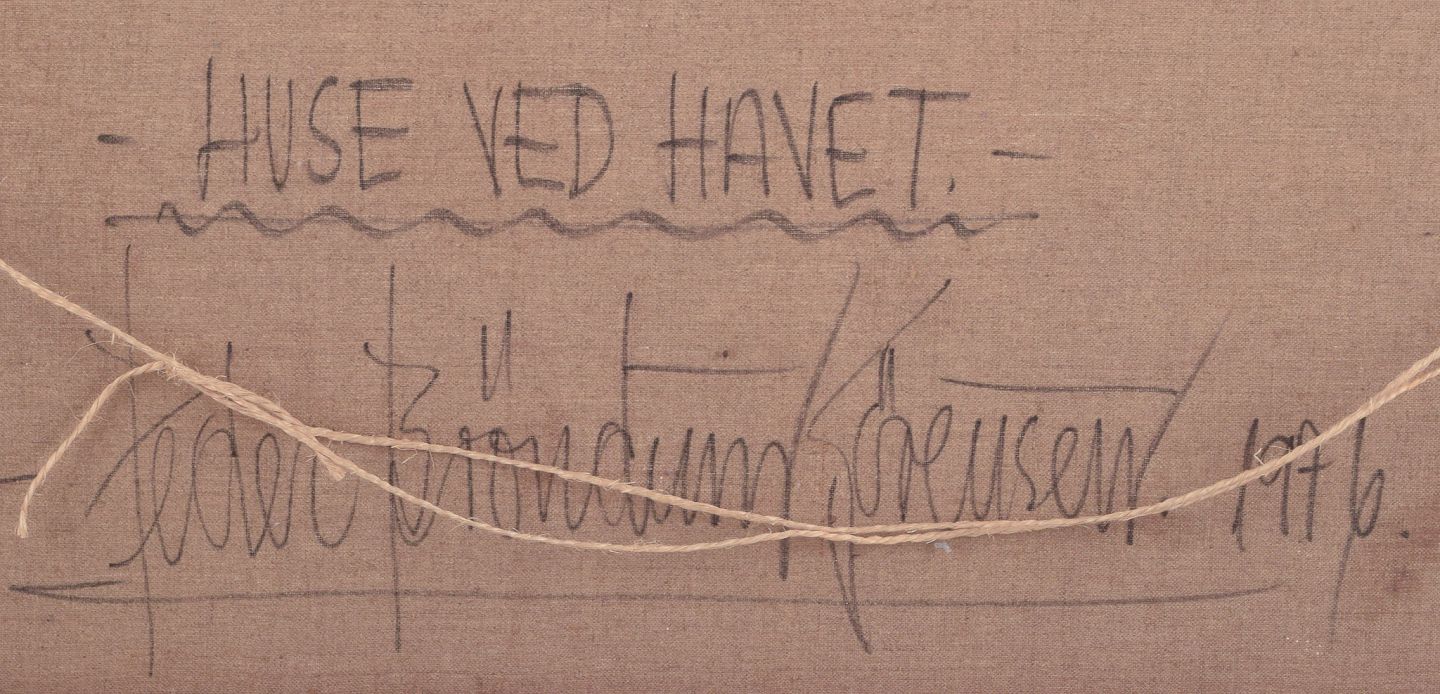 - HUSE VED HAVET. -
Peder Bröndum Sörensen. 1976.